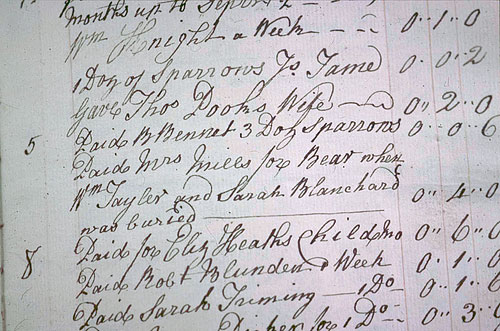 months up to Septbr 2
Wm Knight a Week - - 0" 1" 0
1 Doz of Sparrows Js Tame 0 0" 2
Gave Thos Dooks Wife 0" 2" 0
5 Paid B Bennet 3 Doz Sparrows 0" 0" 6
Paid Mrs Mills for Bear when
Wm Tayler and Sarah Blanchard
was buried 0" 4" 0
Paid for Eliz Heaths Child 0" 6" 0
8 Paid Robt Blunden a Week 0" 1" 0
Paid Sarah Triming - 1 Do 0" 1"
for 1 Do 0" 3"